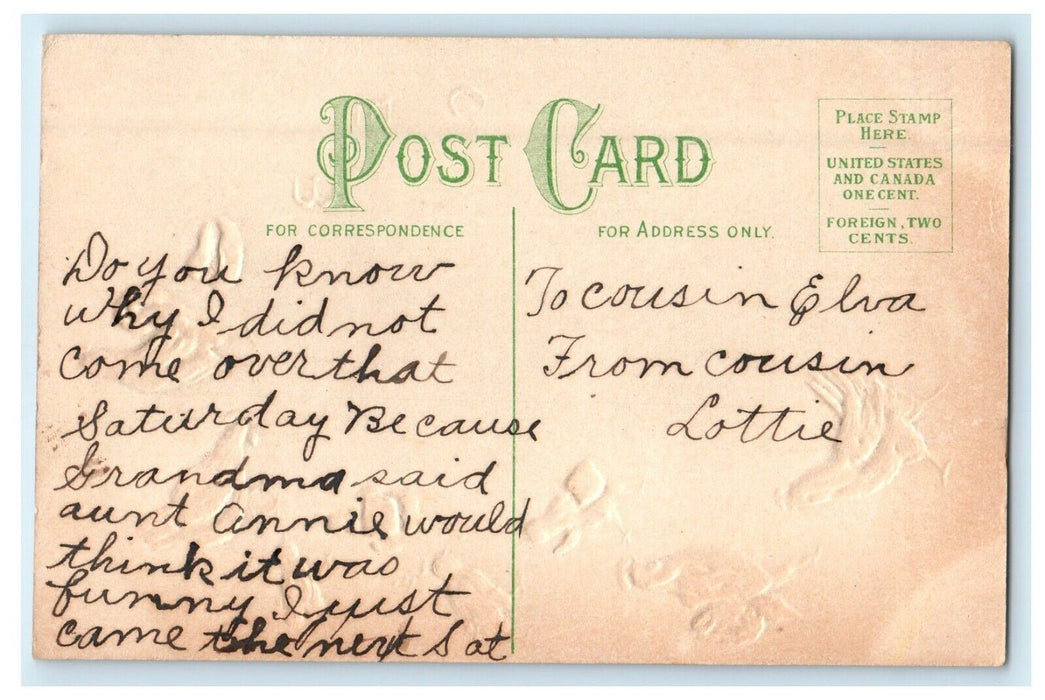 POST CARD
PLACE STAMP
HERE.
UNITED STATES
AND CANADA
ONE CENT.
FOREIGN, TWO
CENTS.
FOR CORRESPONDENCE
FOR ADDRESS ONLY.
Do you know
why I did not
come over that
Saturday Because
Grandma said
aunt annie would
think it was
funny I just
came the next Sat
To cousin Elva
From cousin
Lottie